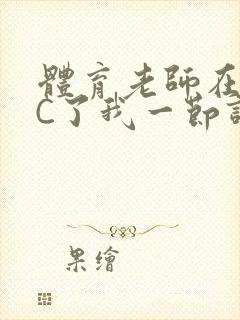 體育老師在
C了我一節
果繪